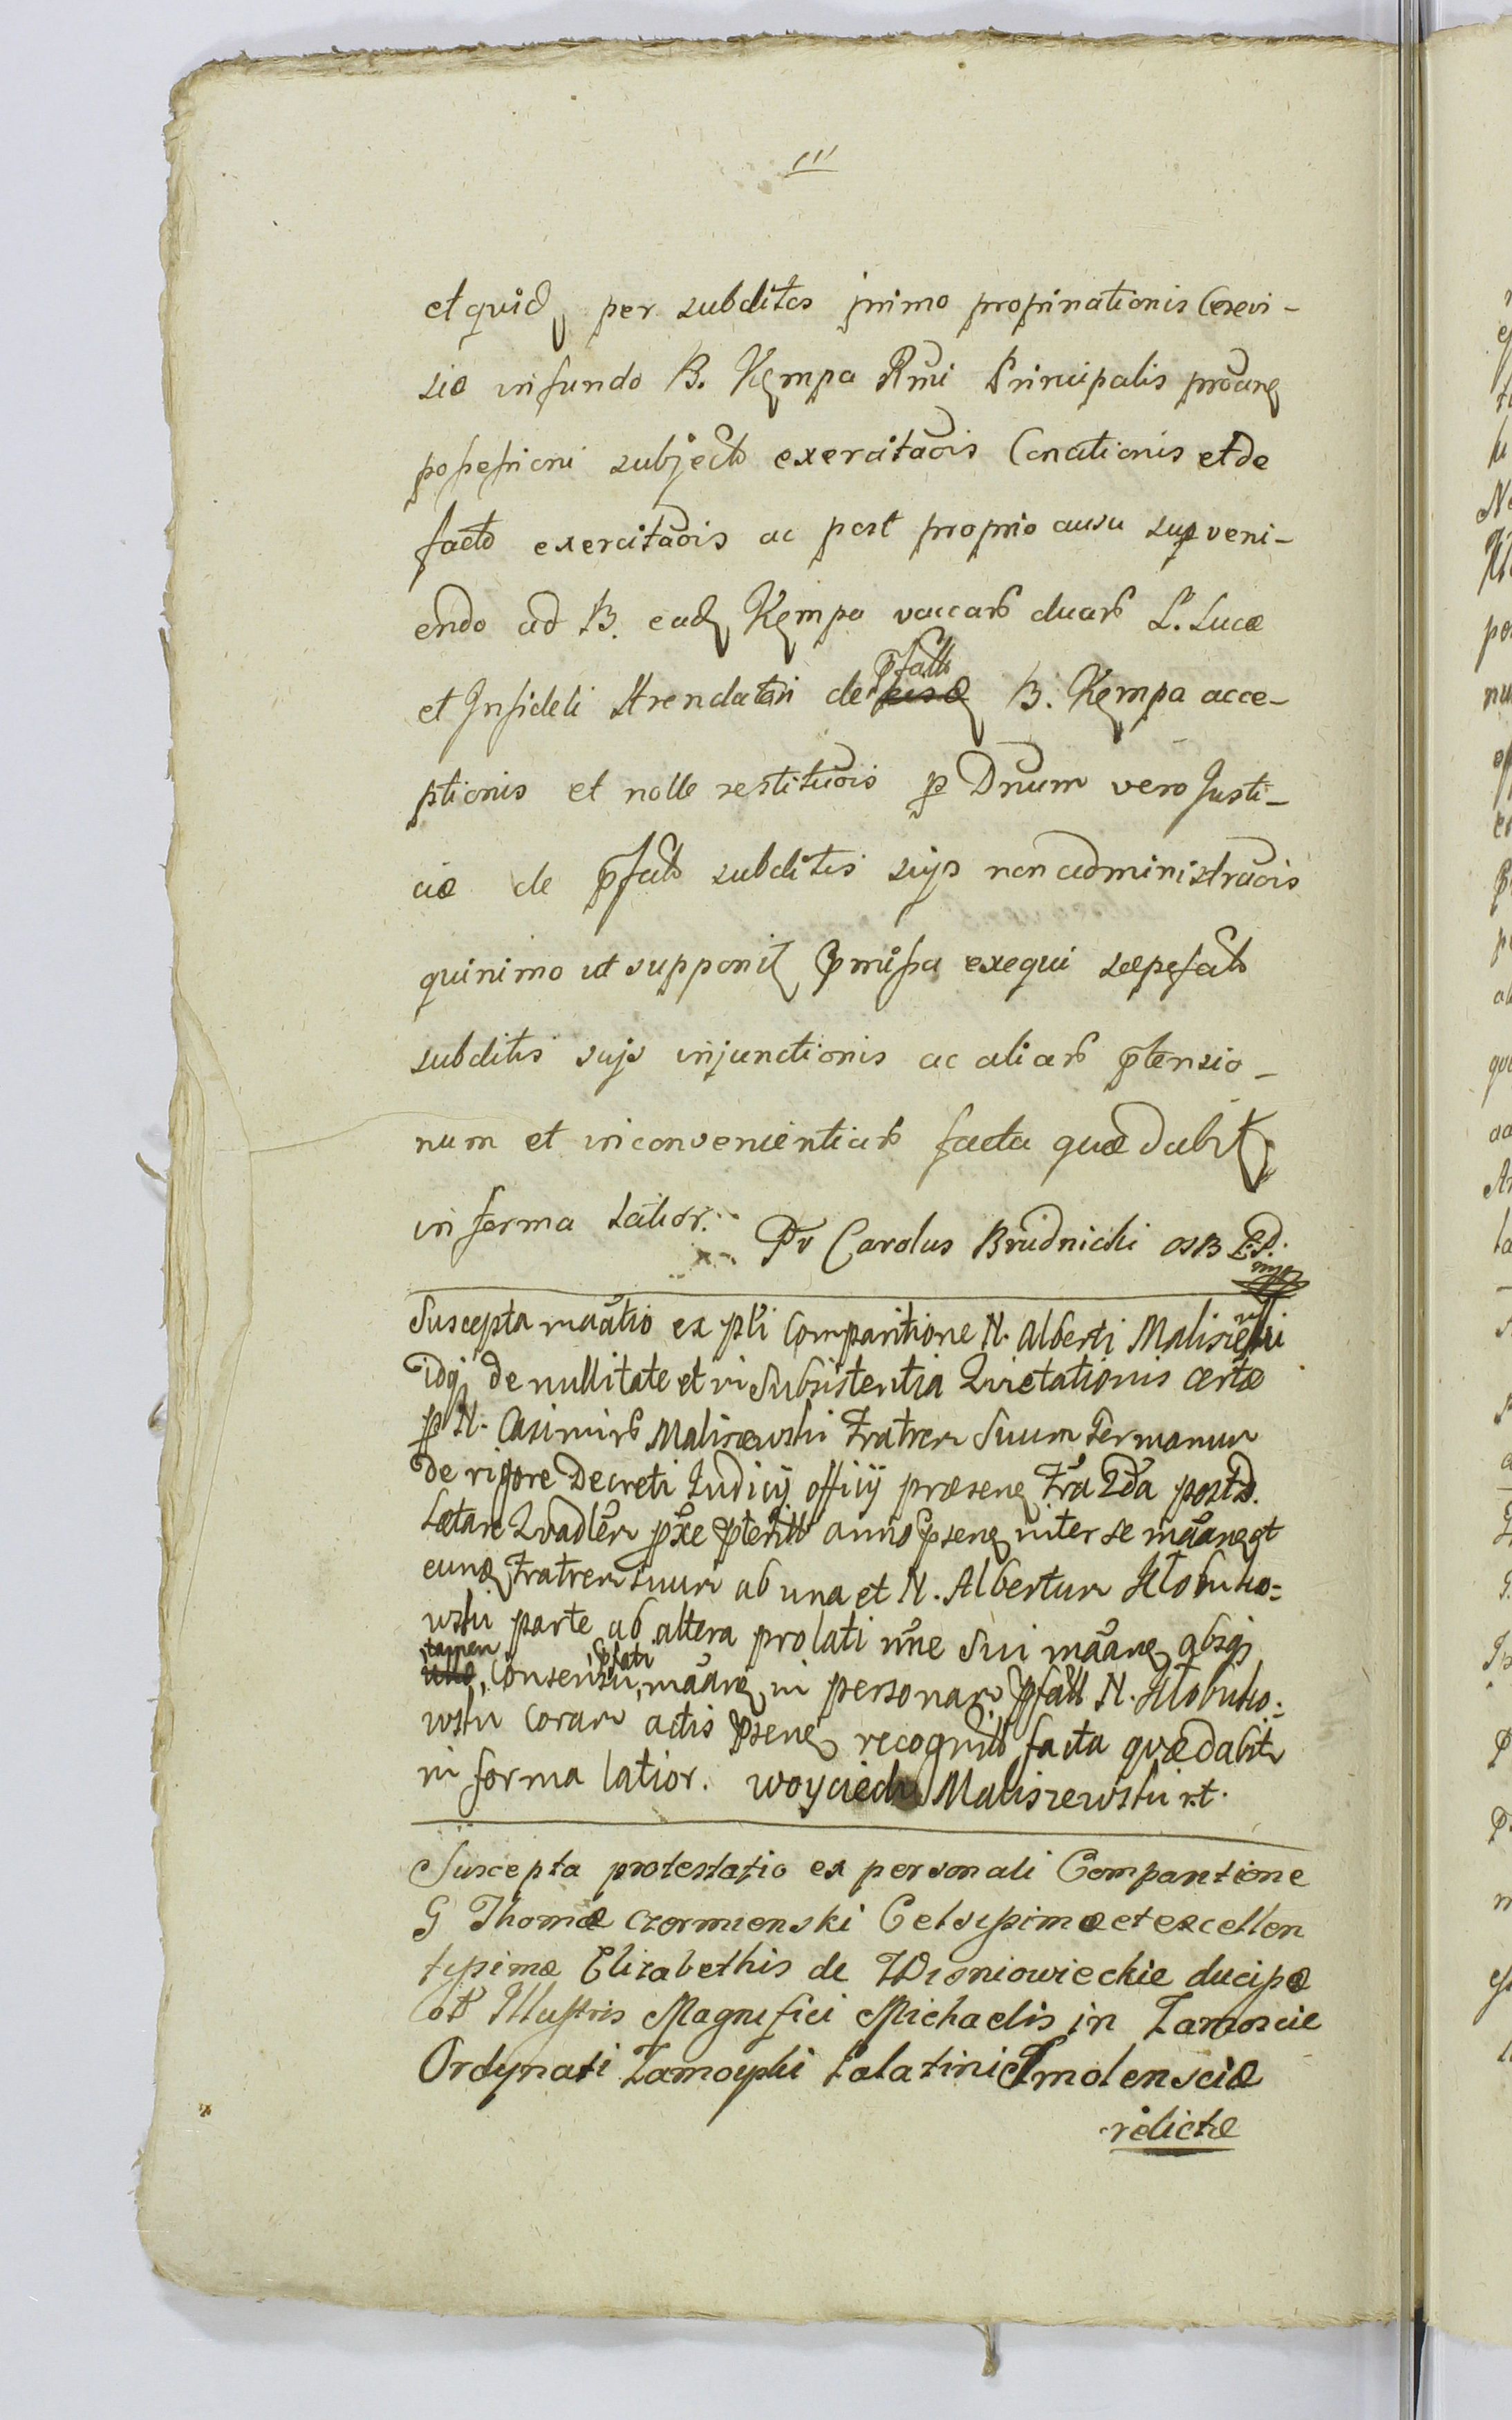 111
et quid per subditos primo propinationis Cerevi-
siæ in fundo B. Kempa Rmi Principalis
possessioni subjecto exercitaōis Conationis et de
facto exercitaōis ac post proprio ausu supveni-
endo ad B. ead Kempa vaccarū duarū S. Lucæ
et Infideli Arendatori de pfatta B. Kempa acce-
ptionis et nolle restituōis p Dnum vero Justi-
ciæ de pfatis subditis suis non administraōis
quinimo ut supponit pmissa exequi sæpefatis
subditis suis injunctionis ac aliarū ptensio-
num et inconvenientiarū facta quæ dabit
in forma latior. Pr Carolus Brudnicki OSB
Suscepta maatio ex psli Comparitione N. Alberti Maliszewski
idq de nullitate et in Subsistentia Quietationis certæ
p N. Casimirū Maliszewski Fratrem Suum Germanum
De rigore Decreti Judicij officij præsen Fra 2da post D.
Lætare Quadler pxe pteritæ anno psen inter se
eund Fratrem suum ab una et N. Albertum Kłobuko=
wski parte ab altera prolati nne Sui absq
tamen Consensu pfati in personam pfatti N. Kłobuko=
wski Coram actis psen recognitæ facta quæ dabit
in forma latior. Woyciech Maliszewski
Suscepta protestatio ex personali Comparitione
G Thomæ Czermienski Celsissimæ et excellen
tissimæ Elizabethis de Wisniowieckie ducissæ
ol Illustris Magnifici Michaelis in Zamoscie
Ordynati Zamoyski Palatini Smolensciæ
relictæ